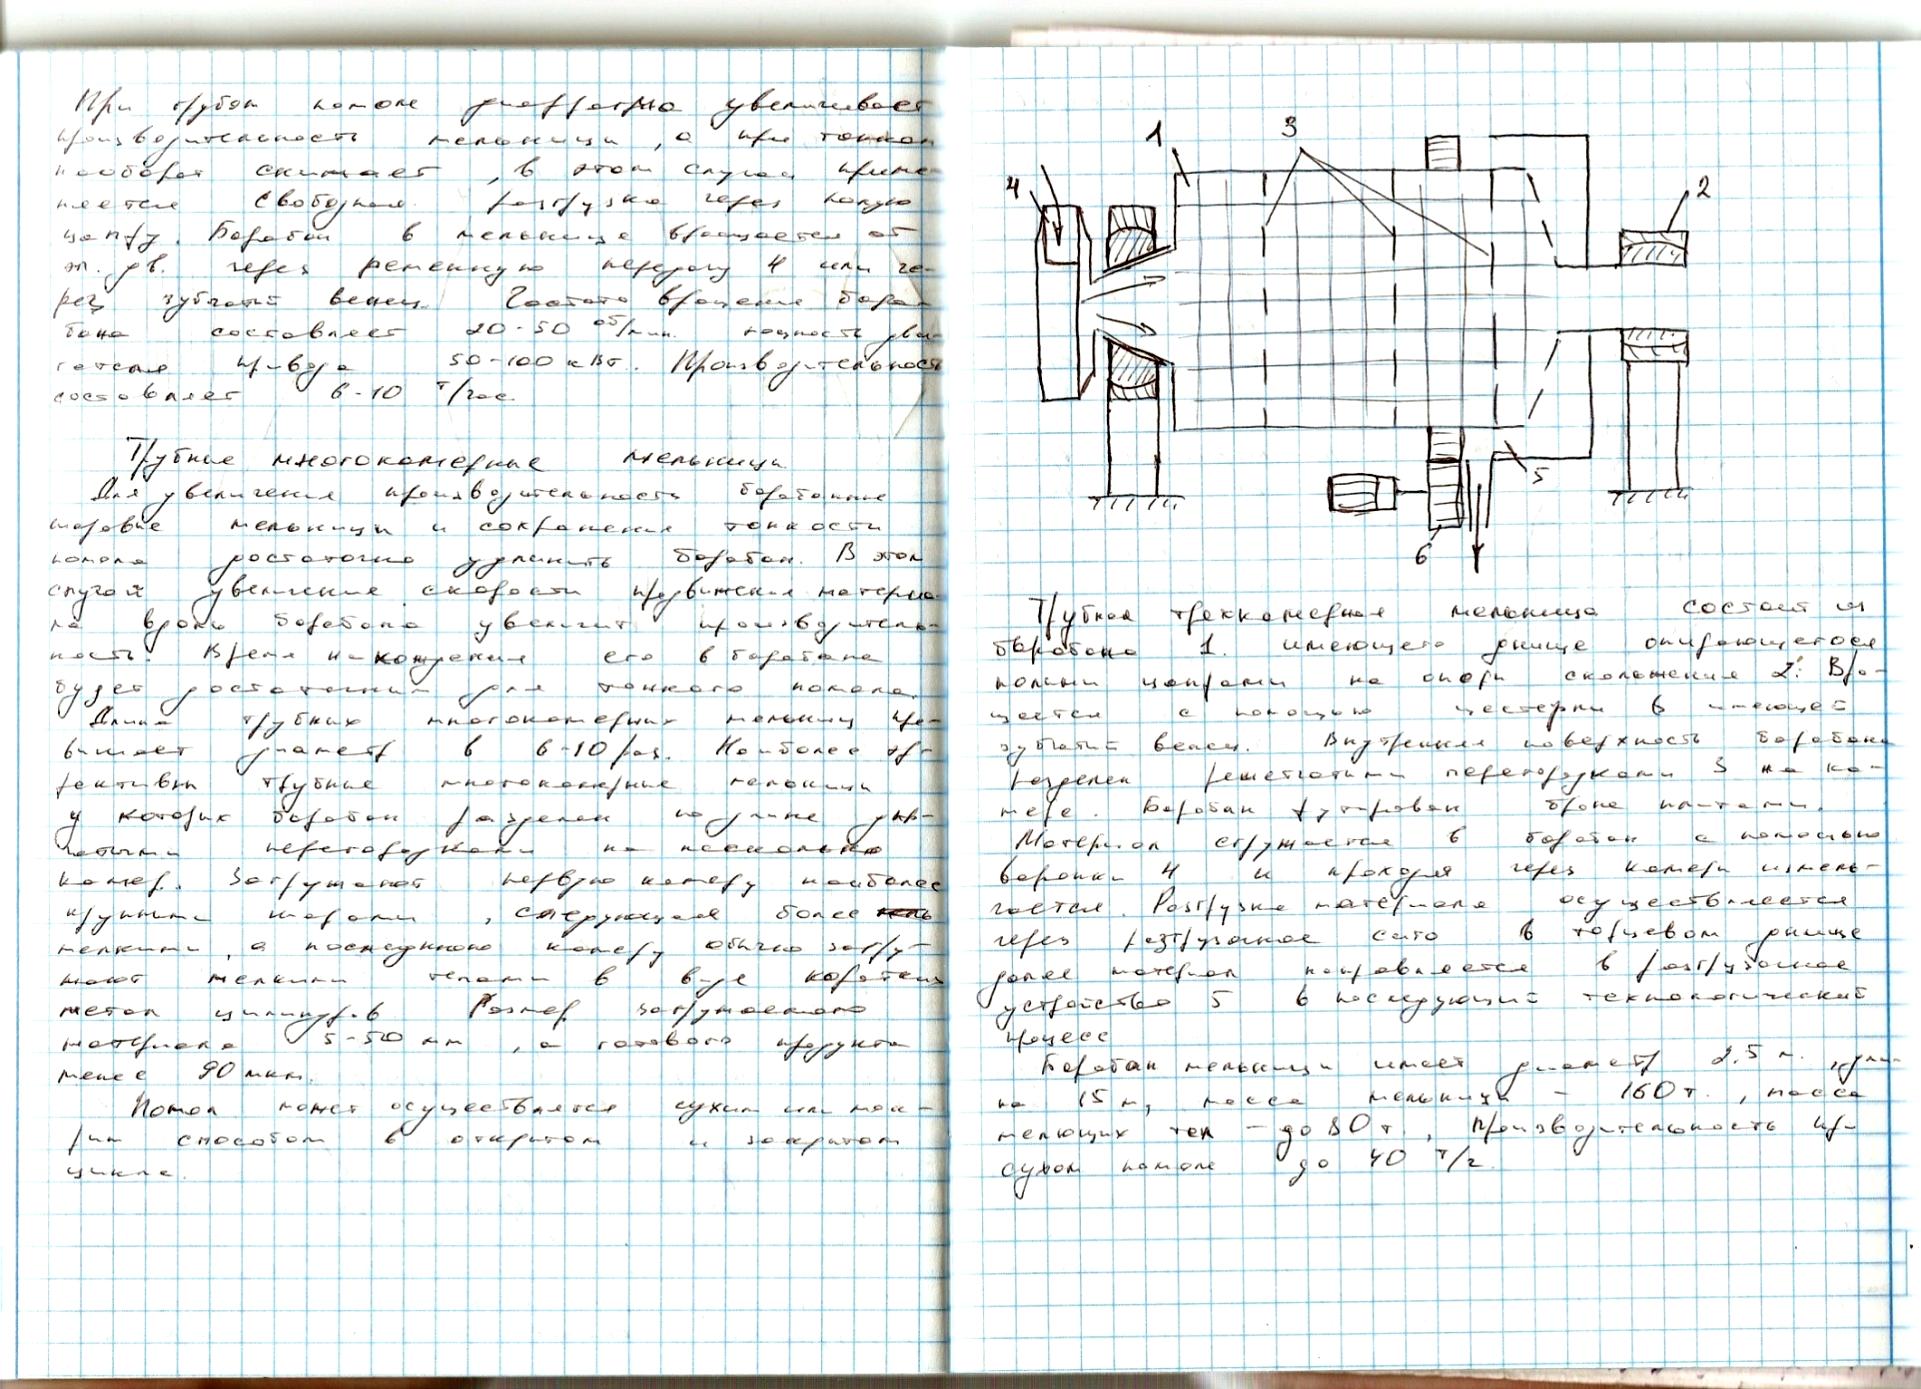 При грубом помоле диафрагма увеличивает
производительность мельницы, а при тонком
наоборот снижает, в этом случаи приме-
няется свободная разгрузка через полую
цапфу. Барабан в мельнице вращается от
эл. дв. через ременную передачу 4 или че-
рез зубчатый венец. Частота вращение бара-
бана составляет 20-50 об/мин. мощность дви-
гателя привода 50-100 кВт. Производительность
составляет 6-10 т/час.
Трубные многокамерные мельницы
Для увеличения производительность барабанные
шаровые мельницы и сохранения тонкости
помола достаточно удлинить барабан. В этом
случай увеличение скорости продвижения материа-
ла вдоль барабана увеличит производитель-
ность. Время нахождения его в барабане
будет достаточным для тонкого помола.
Длина трубных многокамерных мельниц пре-
вышает диаметр в 6-10 раз. Наиболее эф-
фективны трубные многокамерные мельницы
у которых барабан разделен по длине
перегородками на несколько
камер. Загружают первую камеру наиболее
крупными шарами, следующая более
мелкими, а последнюю камеру обычно загру-
жают мелкими телами в виде коротких
метал цилиндров Размер загружаемого
материала 5-50 мм, а готового продукта
менее 90 мкм.
Помол может осуществлятся сухим или мок-
рым способом в открытом и закрытом
цикле.
1 3
4 2
5
6
Трубная трехкамерная мельница состоит из
барабана 1. имеющего днище опирающегося
полыми цапфами на опоры скольжения 2. Вра-
щается с помощью шестерни 6 имеющей
зубчатый венец. Внутренняя поверхность барабана
разделен решетчатыми перегородками 3 на ка-
мере. Барабан футерован броне плитами.
Материал сгружается в барабан с помощью
воронки 4 и проходя через камеры измель-
чается. Разгрузка материала осуществляется
через разгрузочное сито в торцевом днище
далее материал направляется в разгрузочное
устройство 5 в последующий технологический
процесс
Барабан мельницы имеет диаметр 2.5 м., дли-
на 15 м, масса мельницы - 160 т., масса
мелющих тел - до 80 т., производительность при
сухом помоле до 40 т/г.